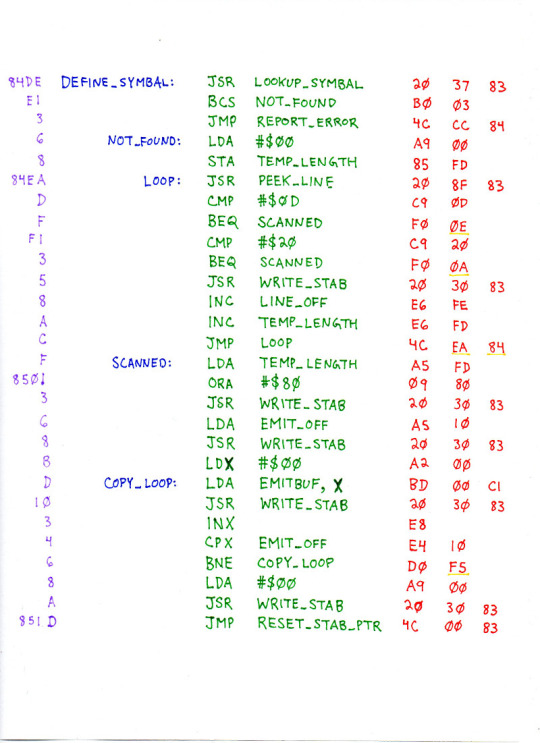 84DE DEFINE_SYMBAL: JSR LOOKUP_SYMBAL 20 37 83
E1 BCS NOT_FOUND B0 03
3 JMP REPORT_ERROR 4C CC 84
6 NOT_FOUND: LDA #$00 A9 00
8 STA TEMP_LENGTH 85 FD
84EA LOOP: JSR PEEK_LINE 20 8F 83
D CMP #$0D C9 0D
F BEQ SCANNED F0 0E
F1 CMP #$20 C9 20
3 BEQ SCANNED F0 0A
5 JSR WRITE_STAB 20 30 83
8 INC LINE_OFF E6 FE
A INC TEMP_LENGTH E6 FD
C JMP LOOP 4C EA 84
F SCANNED: LDA TEMP_LENGTH A5 FD
8501 ORA #$80 09 80
3 JSR WRITE_STAB 20 30 83
6 LDA EMIT_OFF A5 10
8 JSR WRITE_STAB 20 30 83
B LDX #$00 A2 00
D COPY_LOOP: LDA EMITBUF, X BD 00 C1
10 JSR WRITE_STAB 20 30 83
3 INX E8
4 CPX EMIT_OFF E4 10
6 BNE COPY_LOOP D0 F5
8 LDA #$00 A9 00
A JSR WRITE_STAB 20 30 83
851D JMP RESET_STAB_PTR 4C 00 83